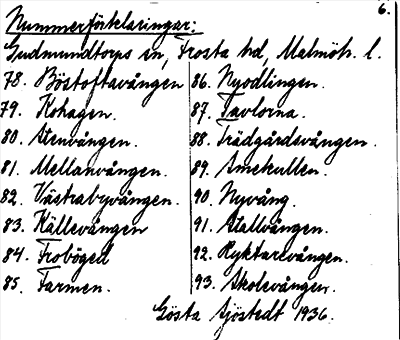 6.
Nummerförklaringar:
Gudmundtorps sn, Frosta hd, Malmöh. l.
78. Böstoftavången
79. Kohagen.
80. Stenvången.
81. Mellanvången.
82. Västrabyvången.
83. Källevången
84. Froböged
85. Farmen.
86. Nyodlingen.
87. Tavlorna.
88. Trädgårdsvången.
89. Smekullen.
90. Nyvång.
91. Stallvången.
92. Ryktarevången.
93. Skolevången.
Gösta Sjöstedt 1936.